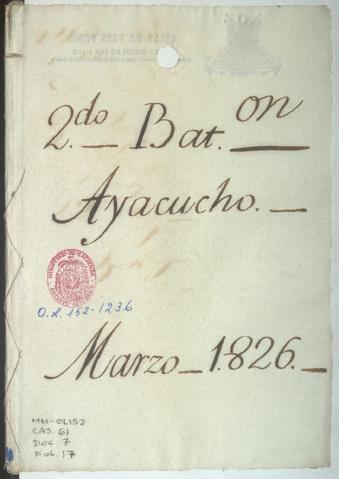 2.do Bat.on
Ayacucho.
O.L. 152-1236
Marzo 1826.
HH-OL152
CAS. 61
DOC. 7
FOL. 17